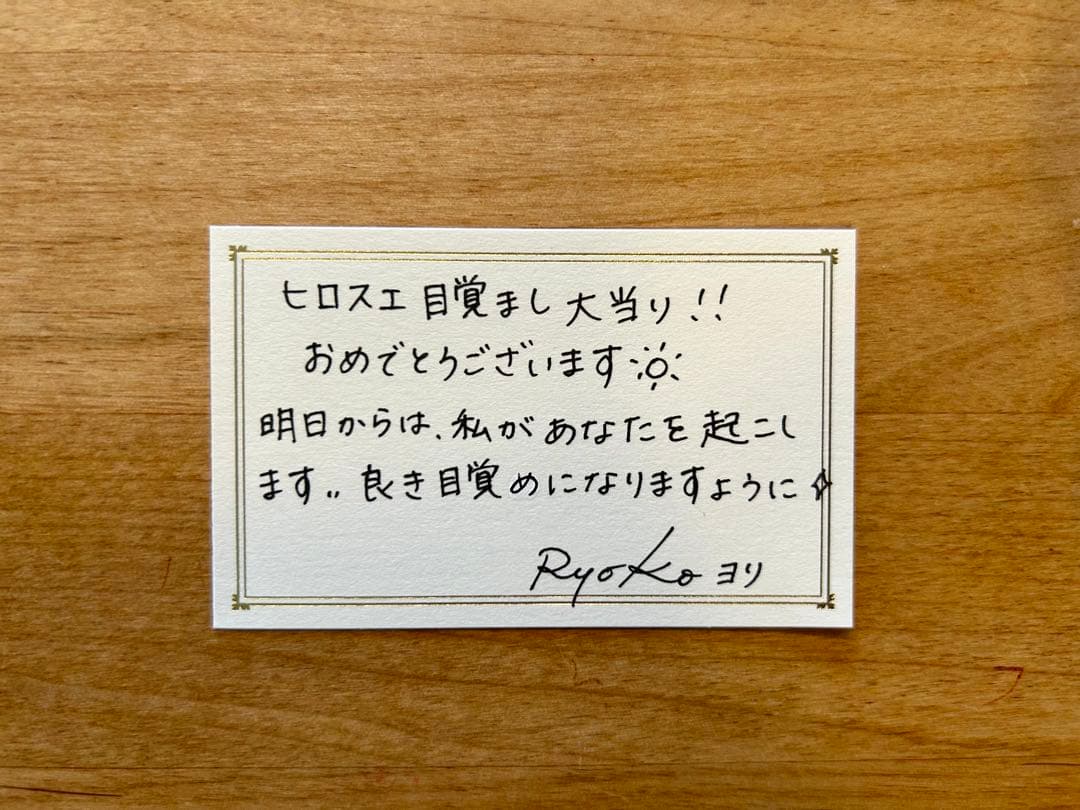 ヒロスエ目覚まし大当り!!
おめでとうございます
明日からは、私があなたを起こし
ます.. 良き目覚めになりますように
Ryoko ヨリ